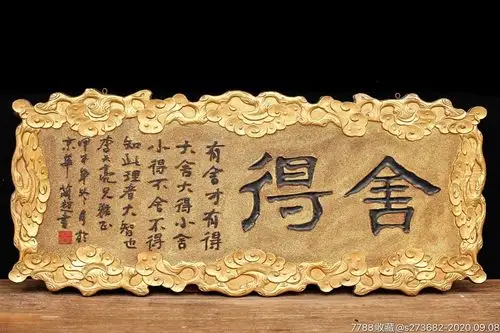 舍得
有舍才有得
大舍大得小舍
小得不舍不得
知此理者大智也
李天亮兄雅正
甲午年冬月於
京華
7788收藏@s273682-2020.09.08